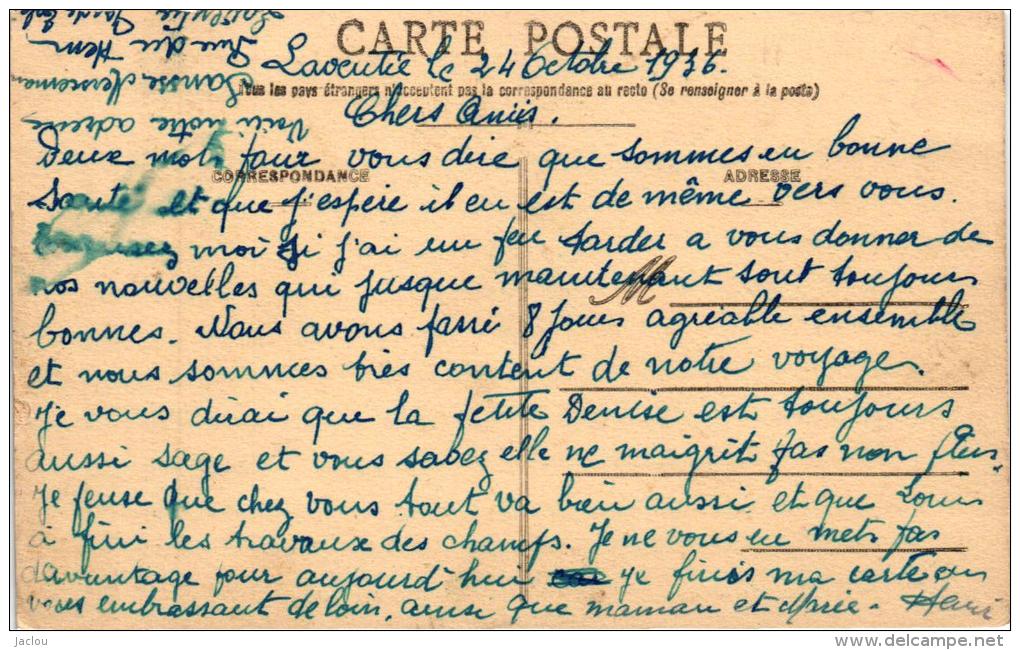 CARTE POSTALE
Laventie le 24 Octobre 1936.
Tous les pays étrangers n'acceptent pas la correspondance au recto (Se renseigner à la poste)
Chers Amis.
Deux mots pour vous dire que sommes en bonne
CORRESPONDANCE ADRESSE
Santé et que j'espère il en est de même vers vous.
Excusez moi si j'ai un peu tarder a vous donner de
nos nouvelles qui jusque maintenant sont toujours
bonnes. Nous avons passé 8 jours agréable ensemble
et nous sommes très content de notre voyage.
Je vous dirai que la petite Denise est toujours
aussi sage et vous savez elle ne maigrit pas non plus.
Je pense que chez vous tout va bien aussi et que Louis
à fini les travaux des champs. Je ne vous en mets pas
davantage pour aujourd'hui Je finis ma carte en
vous embrassant de loin, ainsi que maman et Marie. Henri
Voici notre adresse
Rue du Hem
M
jaclou
www.delcampe.net